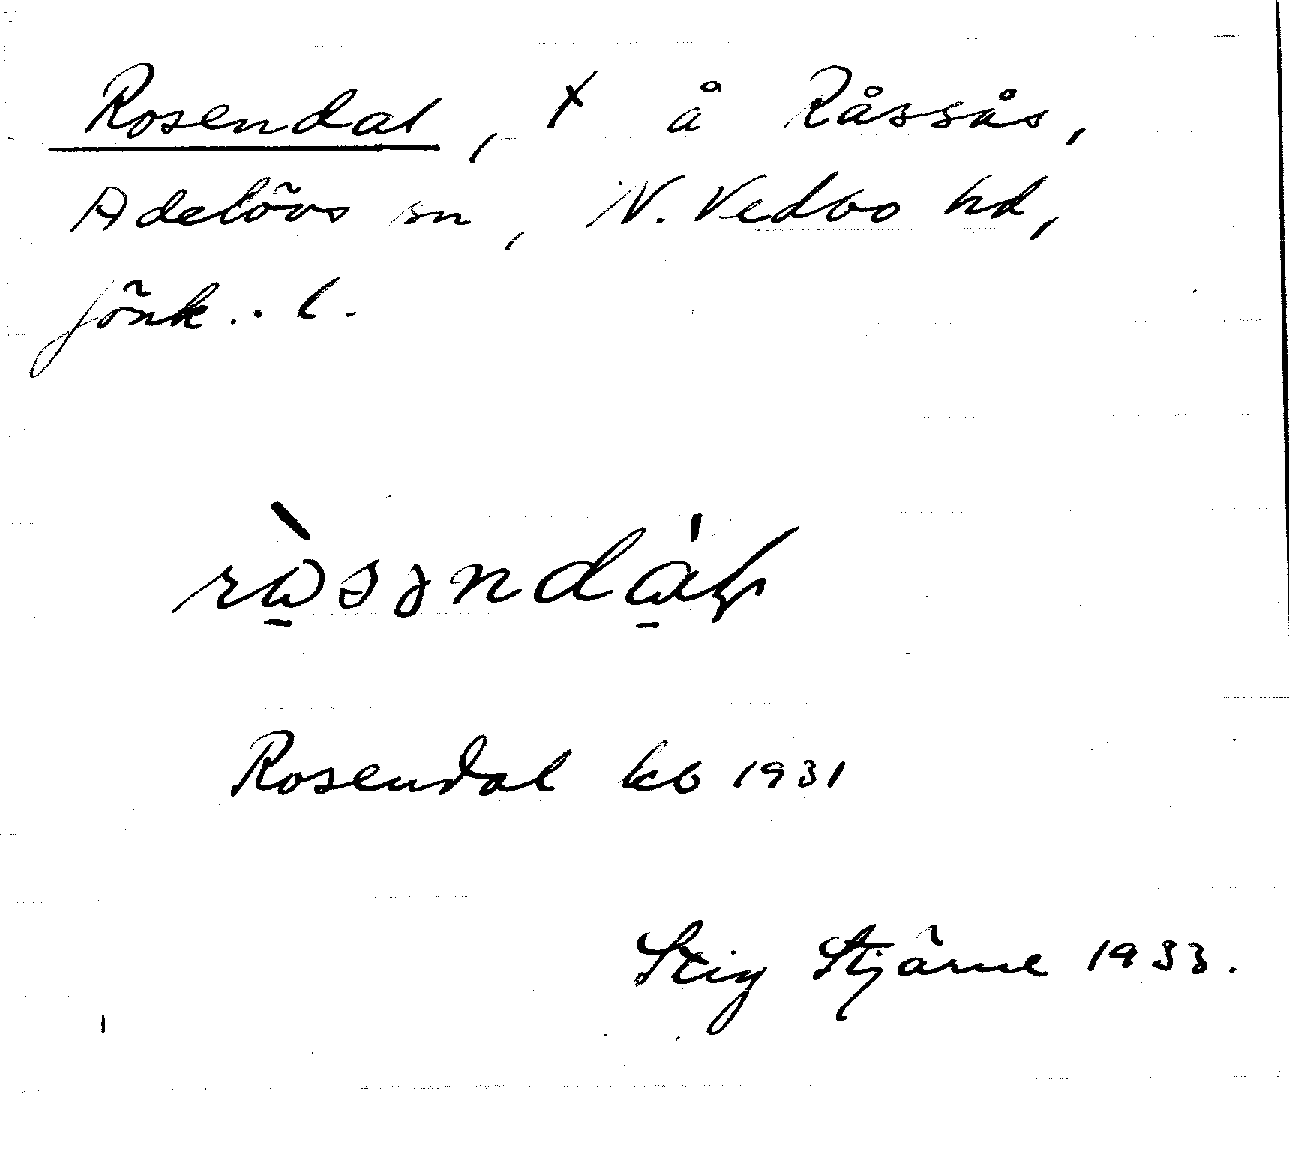 Rosendal, x å Råssås,
Adelövs sn, N. Vedbo hd,
Jönk. . l.
rɷ̀səndɑ́ɫ
Rosendal kb 1931
Stig Stjärne 1933.